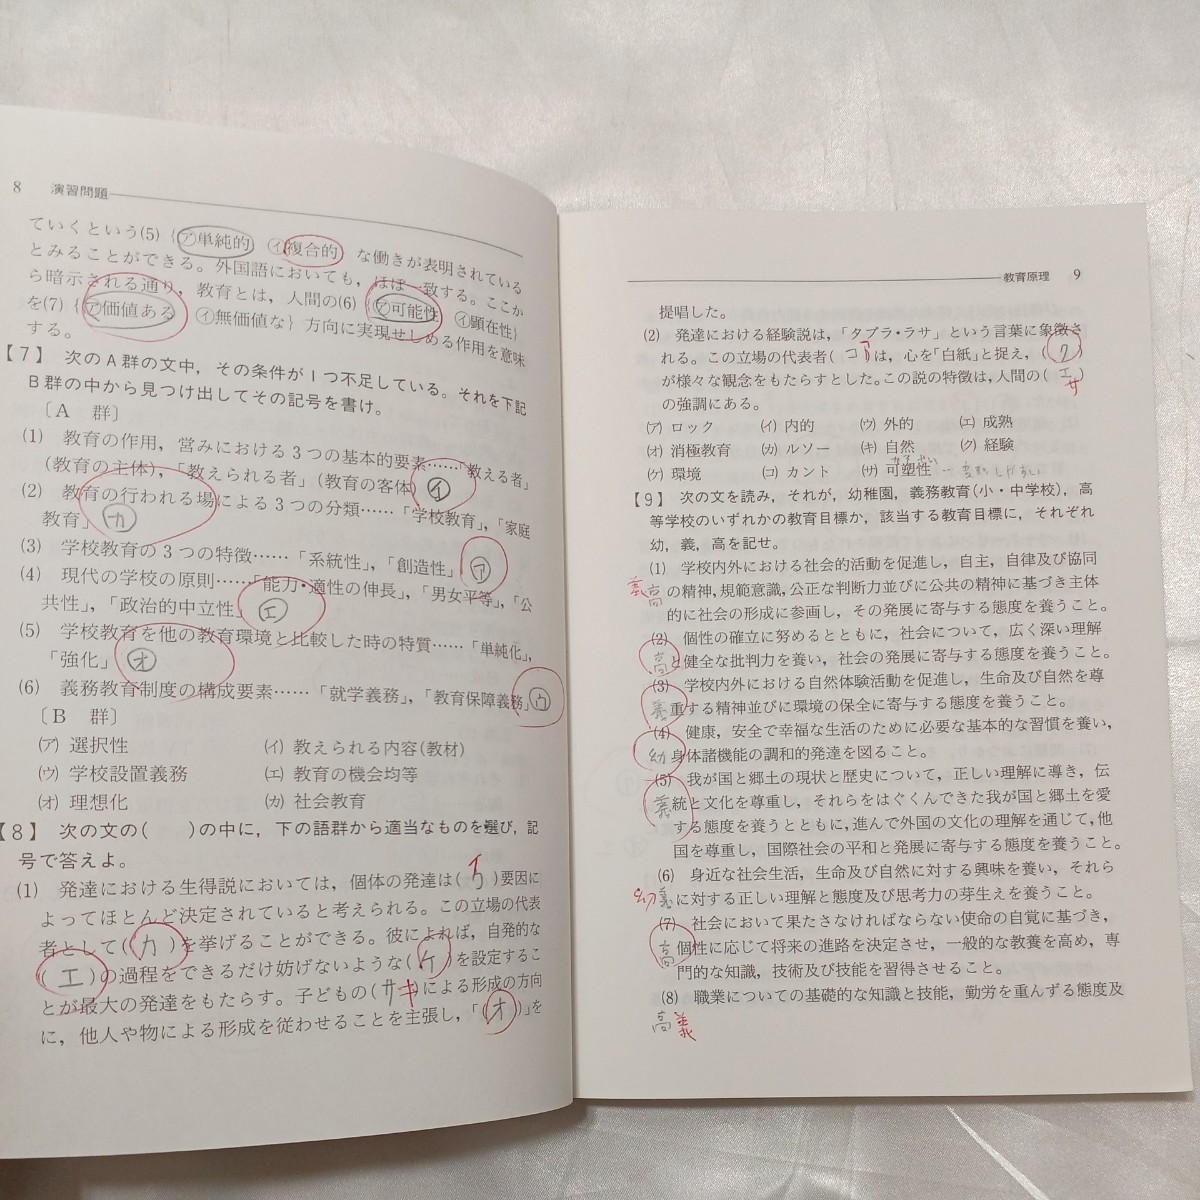 8 演習問題
ていくという(5) {㋐単純的 ㋑複合的 な働きが表明されている
とみることができる。外国語においても，ほぼ一致する。ここか
ら暗示される通り，教育とは，人間の(6) {㋐可能性 ㋑顕在性}
を(7) {㋐価値ある ㋑無価値な} 方向に実現せしめる作用を意味
する。
【7】 次のA群の文中，その条件が1つ不足している。それを下記
B群の中から見つけ出してその記号を書け。
〔A 群〕
(1) 教育の作用，営みにおける3つの基本的要素……「教える者」
(教育の主体)，「教えられる者」(教育の客体) イ
(2) 教育の行われる場による3つの分類……「学校教育」，「家庭
教育」 カ
(3) 学校教育の3つの特徴……「系統性」，「創造性」 ア
(4) 現代の学校の原則……「能力・適性の伸長」，「男女平等」，「公
共性」，「政治的中立性」 エ
(5) 学校教育を他の教育環境と比較した時の特質……「単純化」，
「強化」 オ
(6) 義務教育制度の構成要素……「就学義務」，「教育保障義務」 ウ
〔B 群〕
(ア) 選択性 (イ) 教えられる内容(教材)
(ウ) 学校設置義務 (エ) 教育の機会均等
(オ) 理想化 (カ) 社会教育
【8】 次の文の( )の中に，下の語群から適当なものを選び，記
号で答えよ。
(1) 発達における生得説においては，個体の発達は( イ )要因に
よってほとんど決定されていると考えられる。この立場の代表
者として( カ )を挙げることができる。彼によれば，自発的な
( エ )の過程をできるだけ妨げないような( ケ )を設定するこ
とが最大の発達をもたらす。子どもの( サ キ )による形成の方向
に，他人や物による形成を従わせることを主張し，「( オ )」を
教育原理 9
提唱した。
(2) 発達における経験説は，「タブラ・ラサ」という言葉に象徴さ
れる。この立場の代表者( コ ア )は，心を「白紙」と捉え，( ク )
が様々な観念をもたらすとした。この説の特徴は，人間の( エ サ )
の強調にある。
(ア) ロック (イ) 内的 (ウ) 外的 (エ) 成熟
(オ) 消極教育 (カ) ルソー (キ) 自然 (ク) 経験
(ケ) 環境 (コ) カント (サ) 可塑性
【9】 次の文を読み，それが，幼稚園，義務教育(小・中学校)，高
等学校のいずれかの教育目標か，該当する教育目標に，それぞれ
幼，義，高を記せ。
(1) 学校内外における社会的活動を促進し，自主，自律及び協同
義 高 の精神，規範意識，公正な判断力並びに公共の精神に基づき主体
的に社会の形成に参画し，その発展に寄与する態度を養うこと。
(2) 個性の確立に努めるとともに，社会について，広く深い理解
高 と健全な批判力を養い，社会の発展に寄与する態度を養うこと。
(3) 学校内外における自然体験活動を促進し，生命及び自然を尊
義 重する精神並びに環境の保全に寄与する態度を養うこと。
(4) 健康，安全で幸福な生活のために必要な基本的な習慣を養い，
幼 身体諸機能の調和的発達を図ること。
(5) 我が国と郷土の現状と歴史について，正しい理解に導き，伝
義 統と文化を尊重し，それらをはぐくんできた我が国と郷土を愛
する態度を養うとともに，進んで外国の文化の理解を通じて，他
国を尊重し，国際社会の平和と発展に寄与する態度を養うこと。
(6) 身近な社会生活，生命及び自然に対する興味を養い，それら
幼 義 に対する正しい理解と態度及び思考力の芽生えを養うこと。
(7) 社会において果たさなければならない使命の自覚に基づき，
高 個性に応じて将来の進路を決定させ，一般的な教養を高め，専
門的な知識，技術及び技能を習得させること。
(8) 職業についての基礎的な知識と技能，勤労を重んずる態度及
高 義